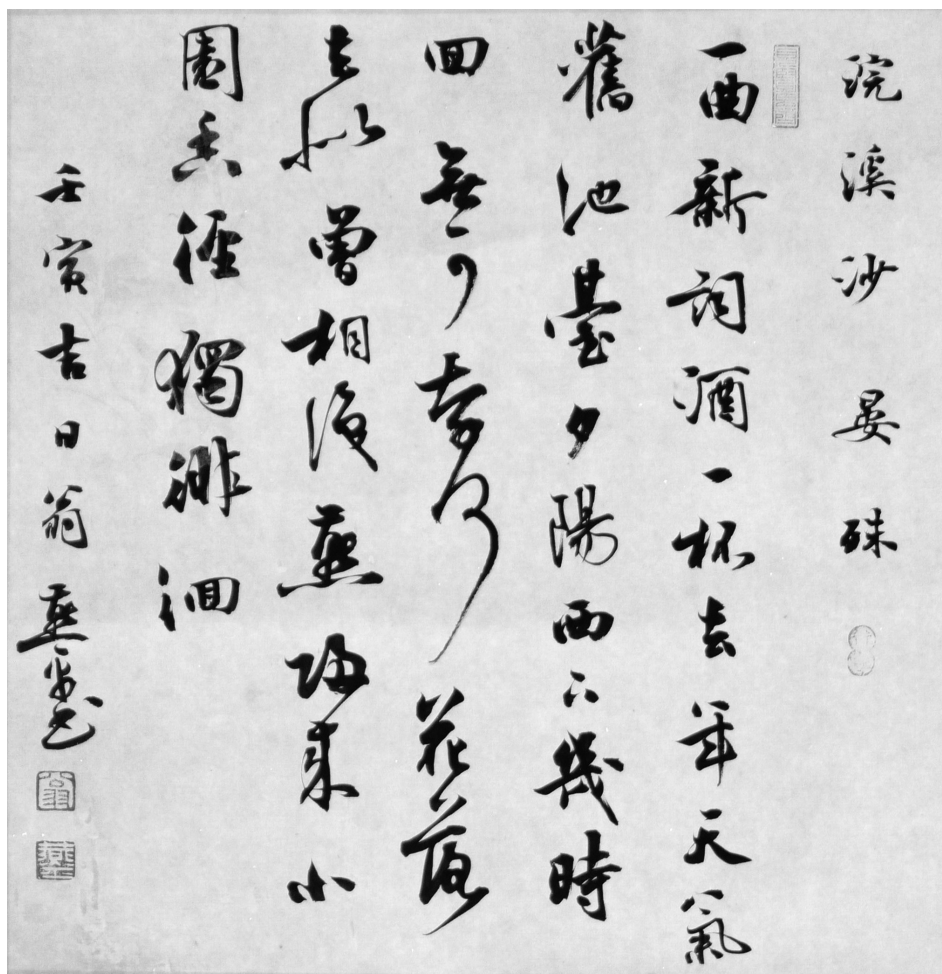 浣溪沙 晏殊
一曲新詞酒一杯去年天氣
舊池臺夕陽西下幾時
回無可奈何花落
去似曾相識燕歸來小
園香徑獨徘徊
壬寅吉日翁燕書
翁
燕